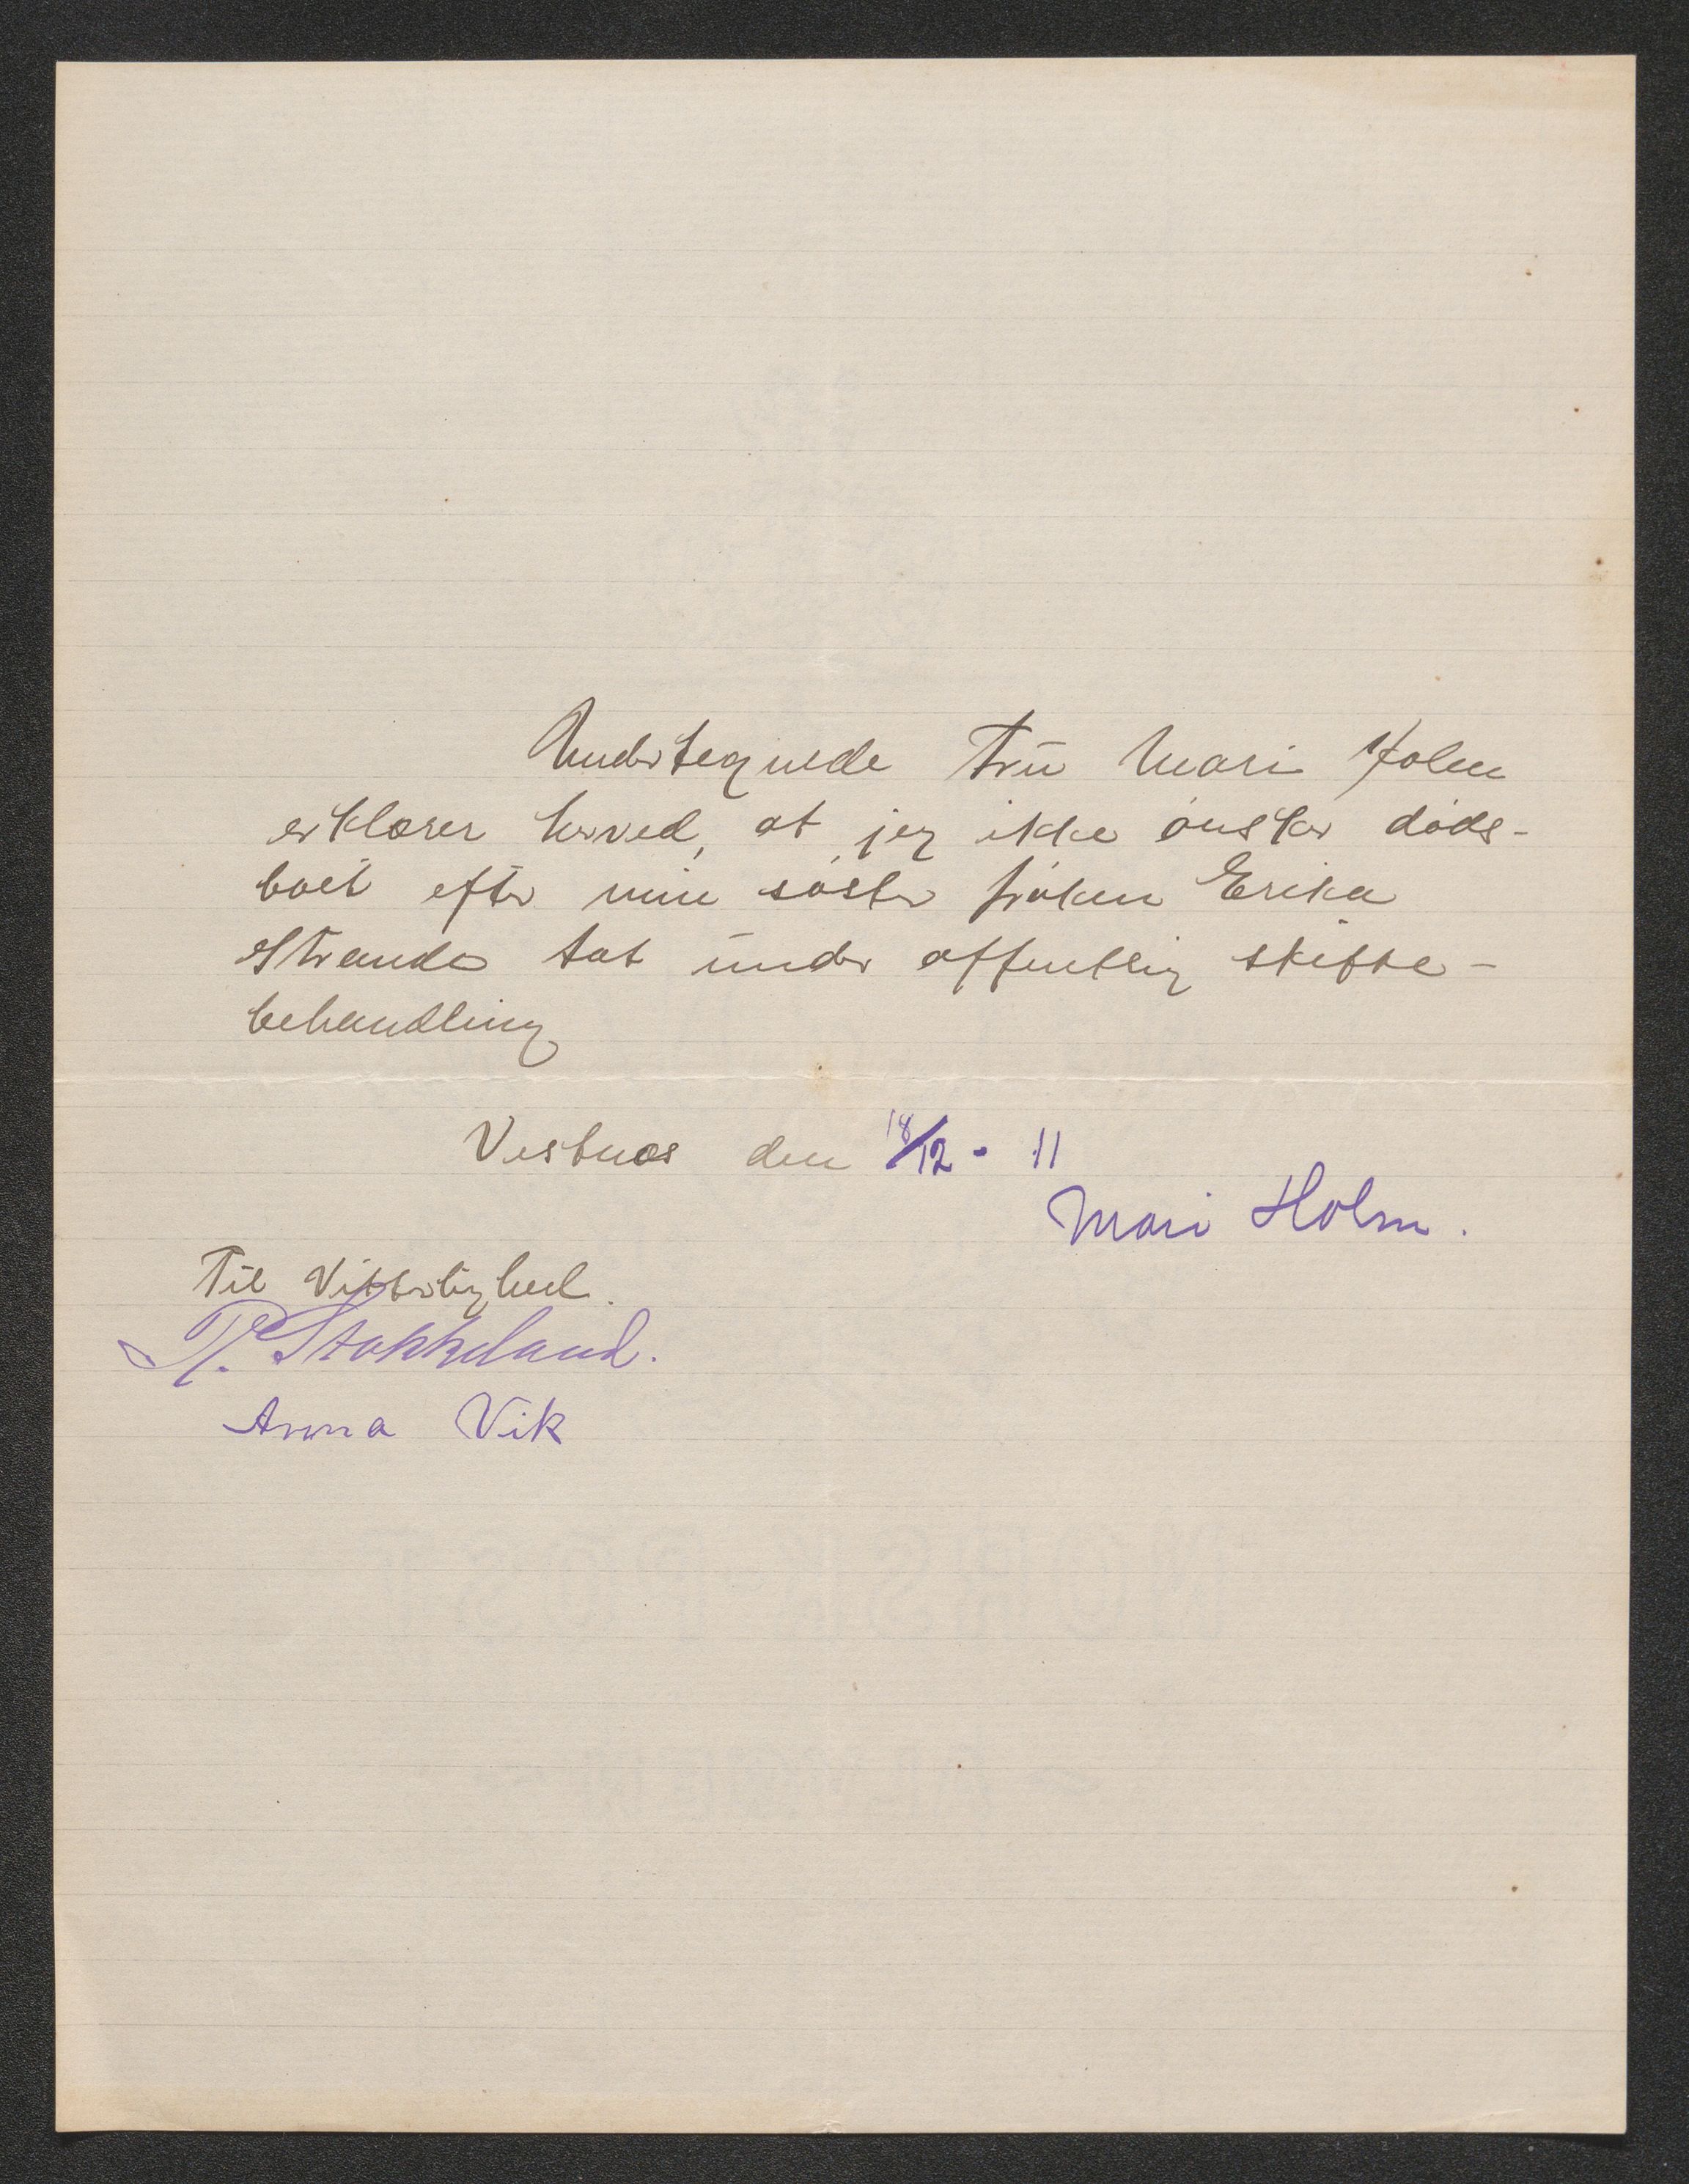 Undertegnede Fru Mari Holm
erklærer herved, at jeg ikke ønsker døds-
boet efter min søster frøken Erika
Strande tat under offentlig skifte-
behandling
Vestnes den 18/12 - 11
Mari Holm.
Til Vitterlighed.
P. Stokkeland.
Anna Vik